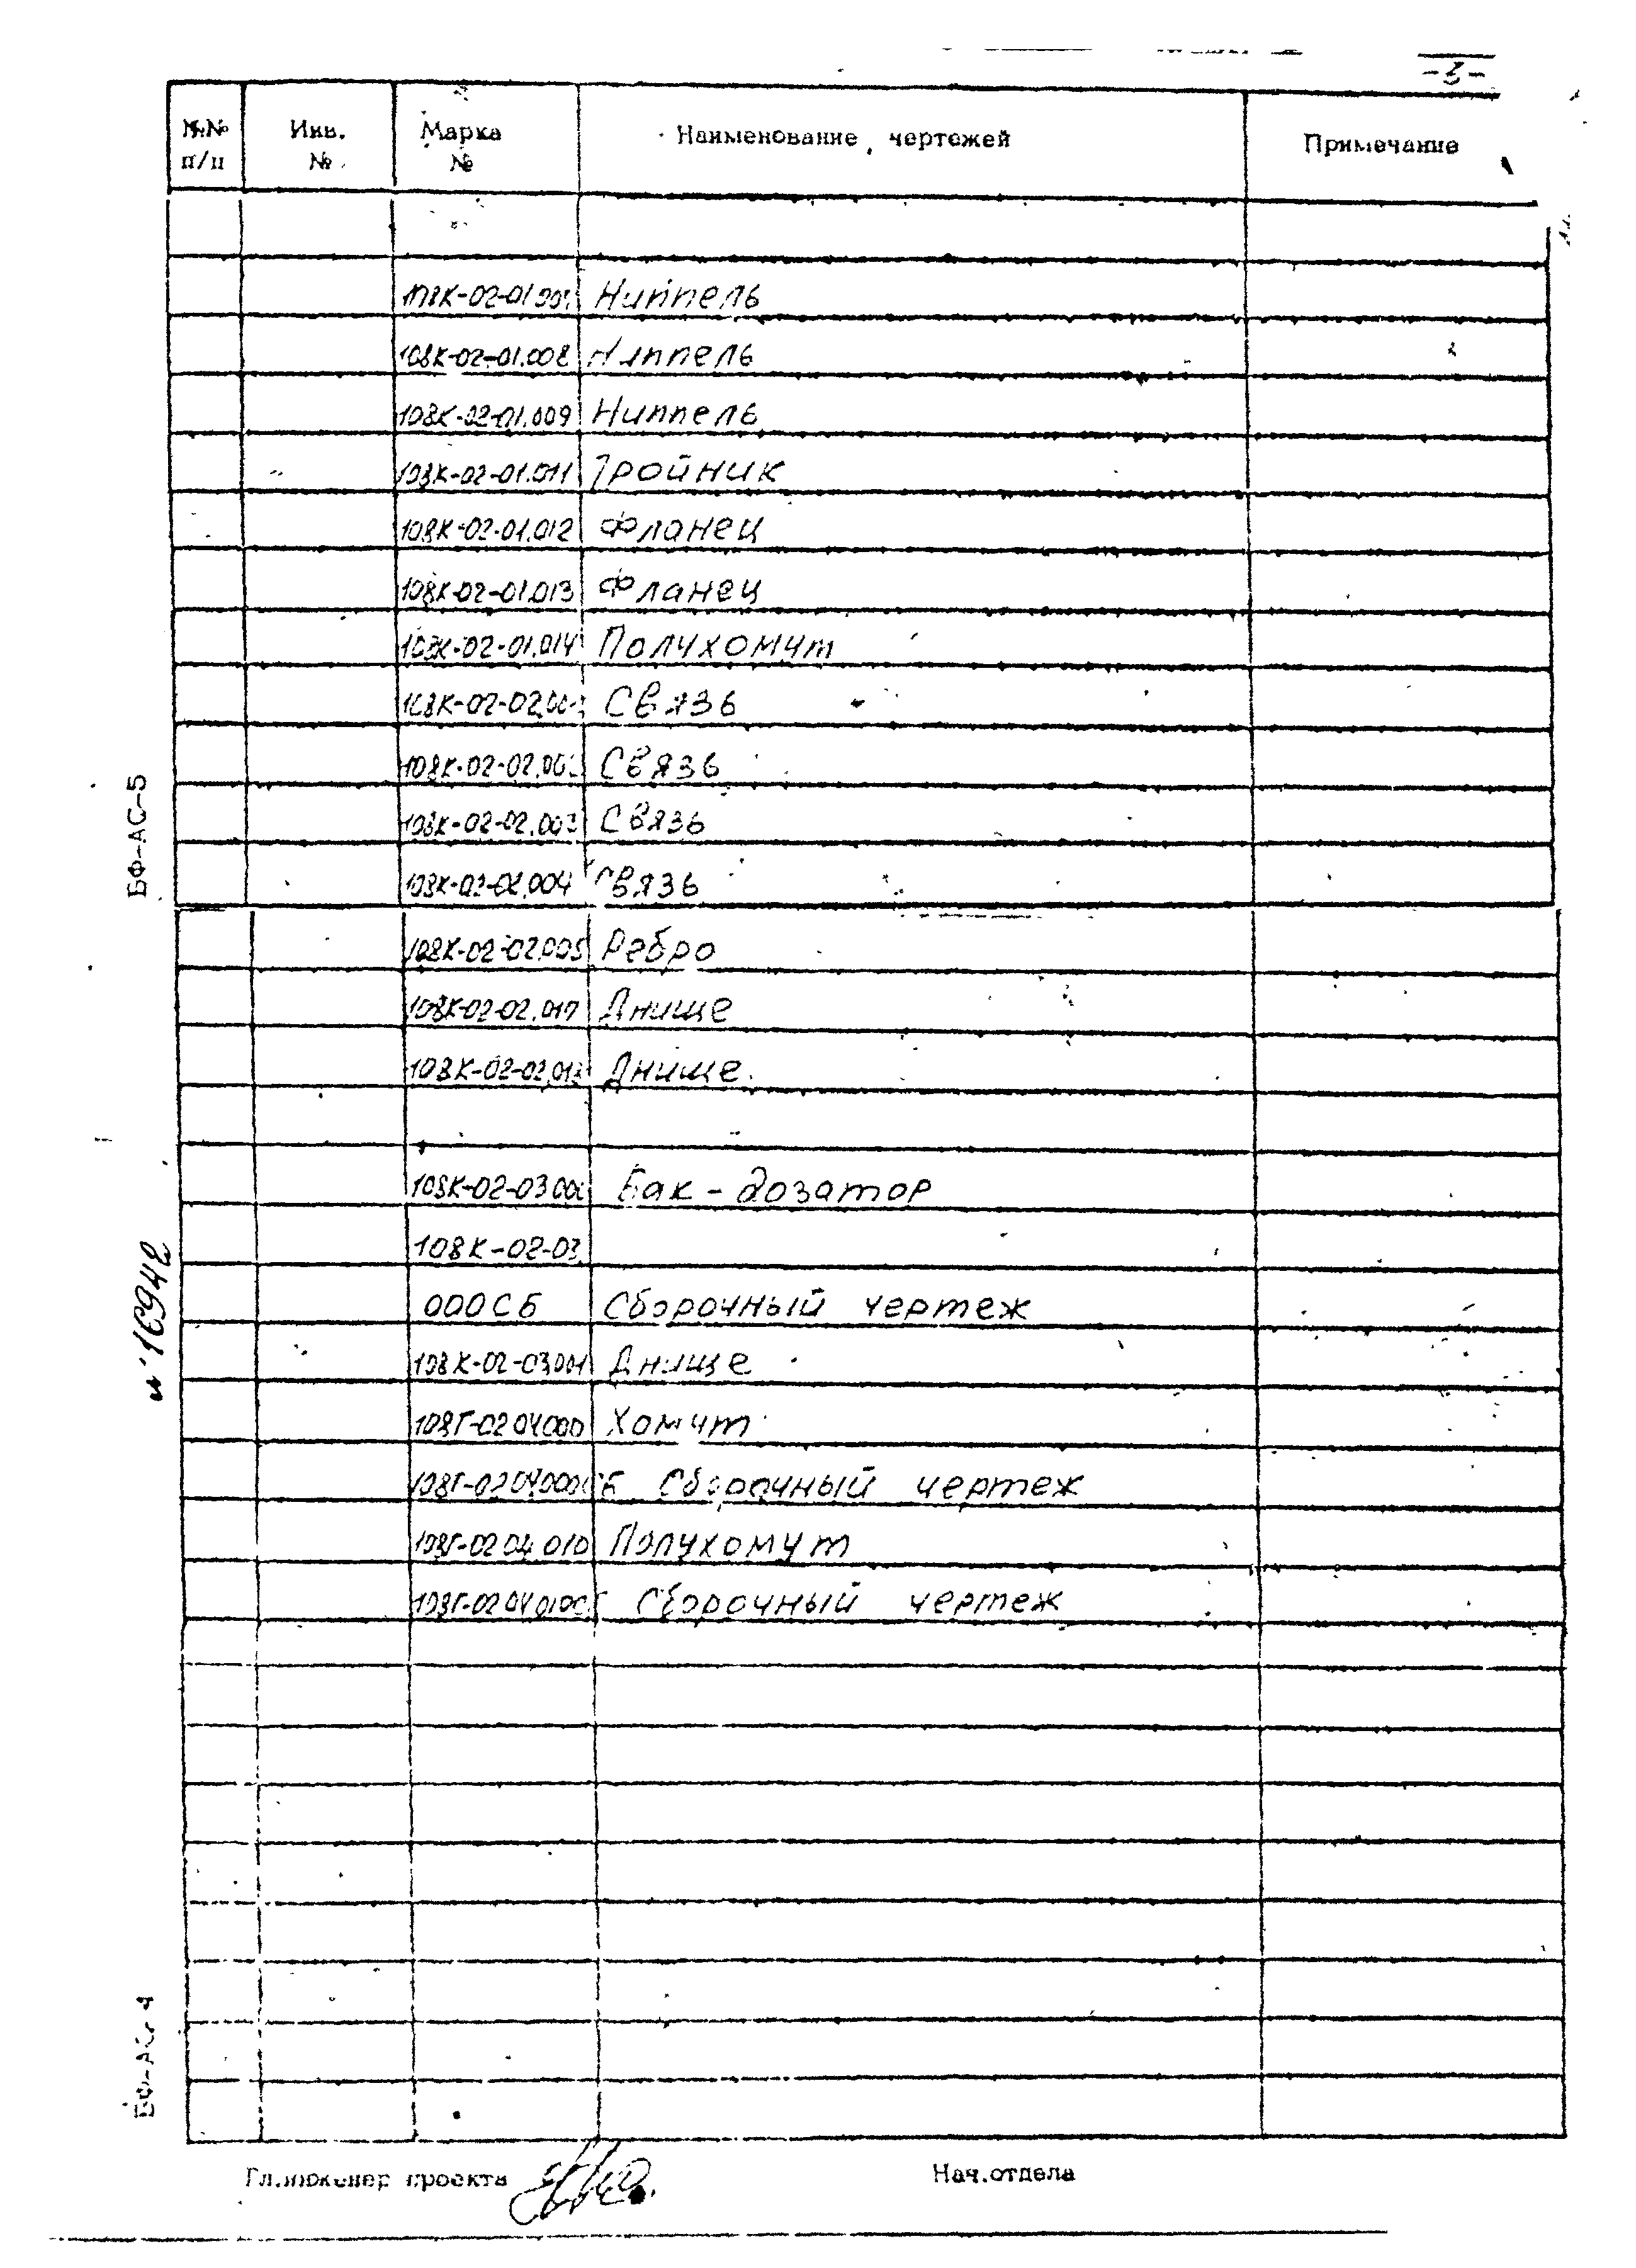 -3-
№№ п/п Инв. № Марка № Наименование чертежей Примечание
Ниппель
108К-02-01.008 Ниппель
108К-02-01.009 Ниппель
108К-02-01.011 Тройник
108К-02-01.012 Фланец
108К-02-01.013 Фланец
108К-02-01.014 Полухомут
Связь
Связь
108К-02-02.003 Связь
108К-02-02.004 Связь
108К-02-02.005 Ребро
Днище
Днище
108К-02-03.000 Бак-дозатор
108К-02-03
000СБ Сборочный чертеж
108К-02-03.001 Днище
108Г-02 04.000 Хомут
108Г-02 04.000СБ Сборочный чертеж
108Г-02 04.010 Полухомут
Сборочный чертеж
БФ-АС-5
Гл.инженер проекта Нач.отдела